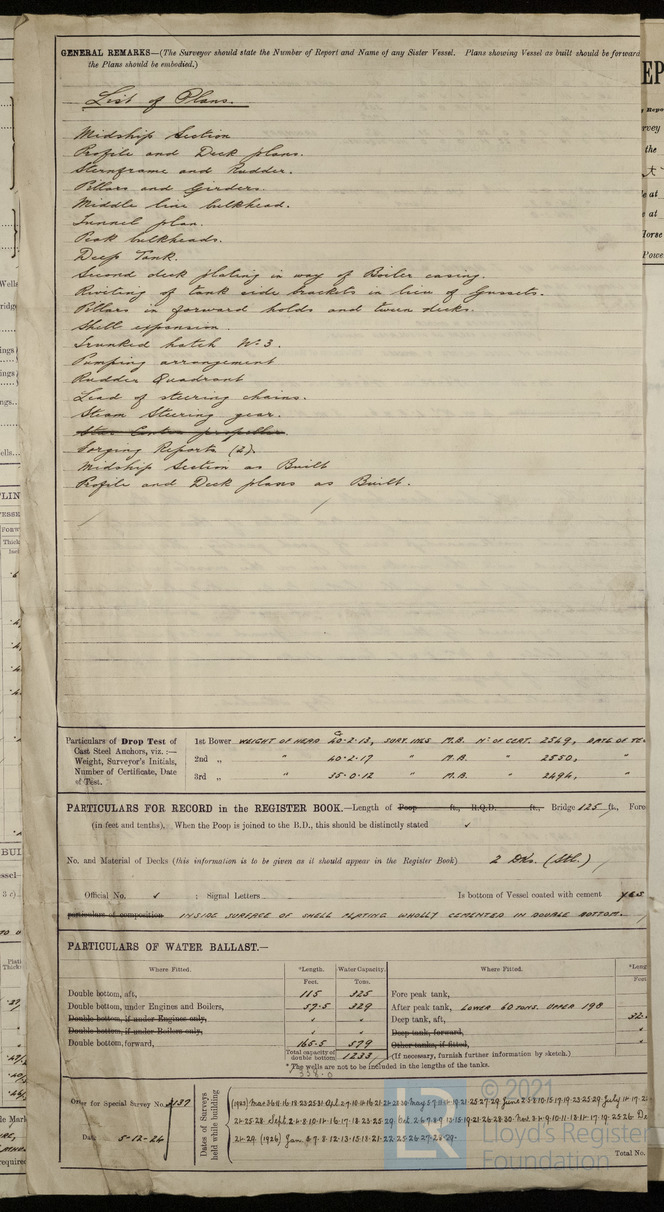 GENERAL REMARKS—(The Surveyor should state the Number of Report and Name of any Sister Vessel. Plans showing Vessel as built should be forward
the Plans should be embodied.)
List of Plans.
Midship Section
Profile and Deck plans.
Sternframe and Rudder.
Pillars and Girders.
Middle line bulkhead.
Tunnel plan.
Peak bulkheads.
Deep Tank.
Second deck plating in way of Boiler casing.
Riviting of tank side brackets in lieu of Gussets.
Pillars in forward holds and tween decks.
Shell expansion.
Trunked hatch No. 3.
Pumping arrangement
Rudder Quadrant
Lead of steering chains.
Steam Steering gear.
Star Contra propeller.
Forging Reports (2).
Midship Section as Built
Profile and Deck plans as Built.
Particulars of Drop Test of
Cast Steel Anchors, viz. :—
Weight, Surveyor's Initials,
Number of Certificate, Date
of Test.
1st Bower WEIGHT OF HEAD 40-2-13, SURV. INLS M.B. No. OF CERT. 2549, DATE OF TE
2nd „ " 40-2-17 " M.B. " 2550, "
3rd „ " 35-0-12 " M.B. " 2494, "
PARTICULARS FOR RECORD in the REGISTER BOOK.—Length of Poop ft., R.Q.D. ft., Bridge 125 ft., Fore
(in feet and tenths). When the Poop is joined to the B.D., this should be distinctly stated ✓
No. and Material of Decks (this information is to be given as it should appear in the Register Book) 2 Dks. (Stl.)
Official No. ✓ ; Signal Letters Is bottom of Vessel coated with cement yes
particulars of composition INSIDE SURFACE OF SHELL PLATING WHOLLY CEMENTED IN DOUBLE BOTTOM.
PARTICULARS OF WATER BALLAST.—
Where Fitted. *Length. Water Capacity. Where Fitted. *Leng
Feet. Tons. Feet
Double bottom, aft, 115 325 Fore peak tank,
Double bottom, under Engines and Boilers, 57.5 329 After peak tank, LOWER 60 TONS. UPPER 198
Double bottom, if under Engines only, " " Deep tank, aft, 32.
Double bottom, if under Boilers only, " " Deep tank, forward, "
Double bottom, forward, 165.5 579 Other tanks, if fitted, "
Total capacity of double bottom 1233 (If necessary, furnish further information by sketch.)
* The wells are not to be included in the lengths of the tanks.
338.0
Order for Special Survey No. 2137
Date 5-12-24
Dates of Surveys held while building
Total No.
© 2021
Lloyd's Register
Foundation
LR